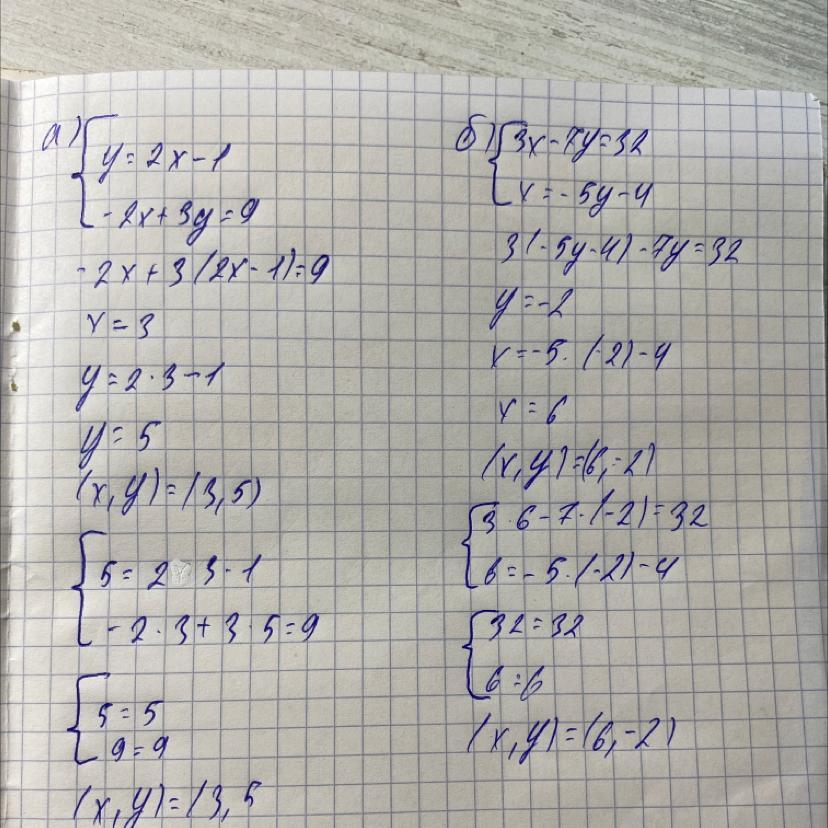 а) { y = 2x - 1
-2x + 3y = 9
-2x + 3(2x - 1) = 9
x = 3
y = 2 · 3 - 1
y = 5
(x, y) = (3, 5)
{ 5 = 2 3 - 1
-2 · 3 + 3 · 5 = 9
{ 5 = 5
9 = 9
(x, y) = (3, 5
б) { 3x - 7y = 32
x = -5y - 4
3(-5y - 4) - 7y = 32
y = -2
x = -5 · (-2) - 4
x = 6
(x, y) = (6, -2)
{ 3 · 6 - 7 · (-2) = 32
6 = -5 · (-2) - 4
{ 32 = 32
6 = 6
(x, y) = (6, -2)